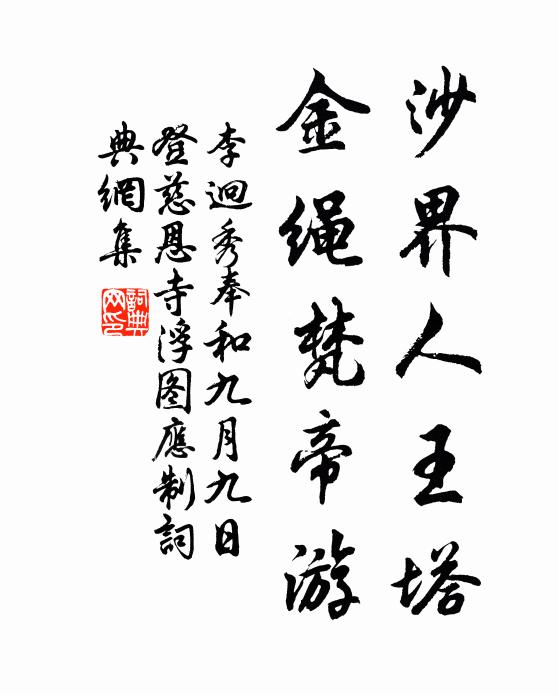 沙界人王塔
金绳梵帝游
李迥秀奉和九月九日
登慈恩寺浮图應制詞
典網集
詞典網印